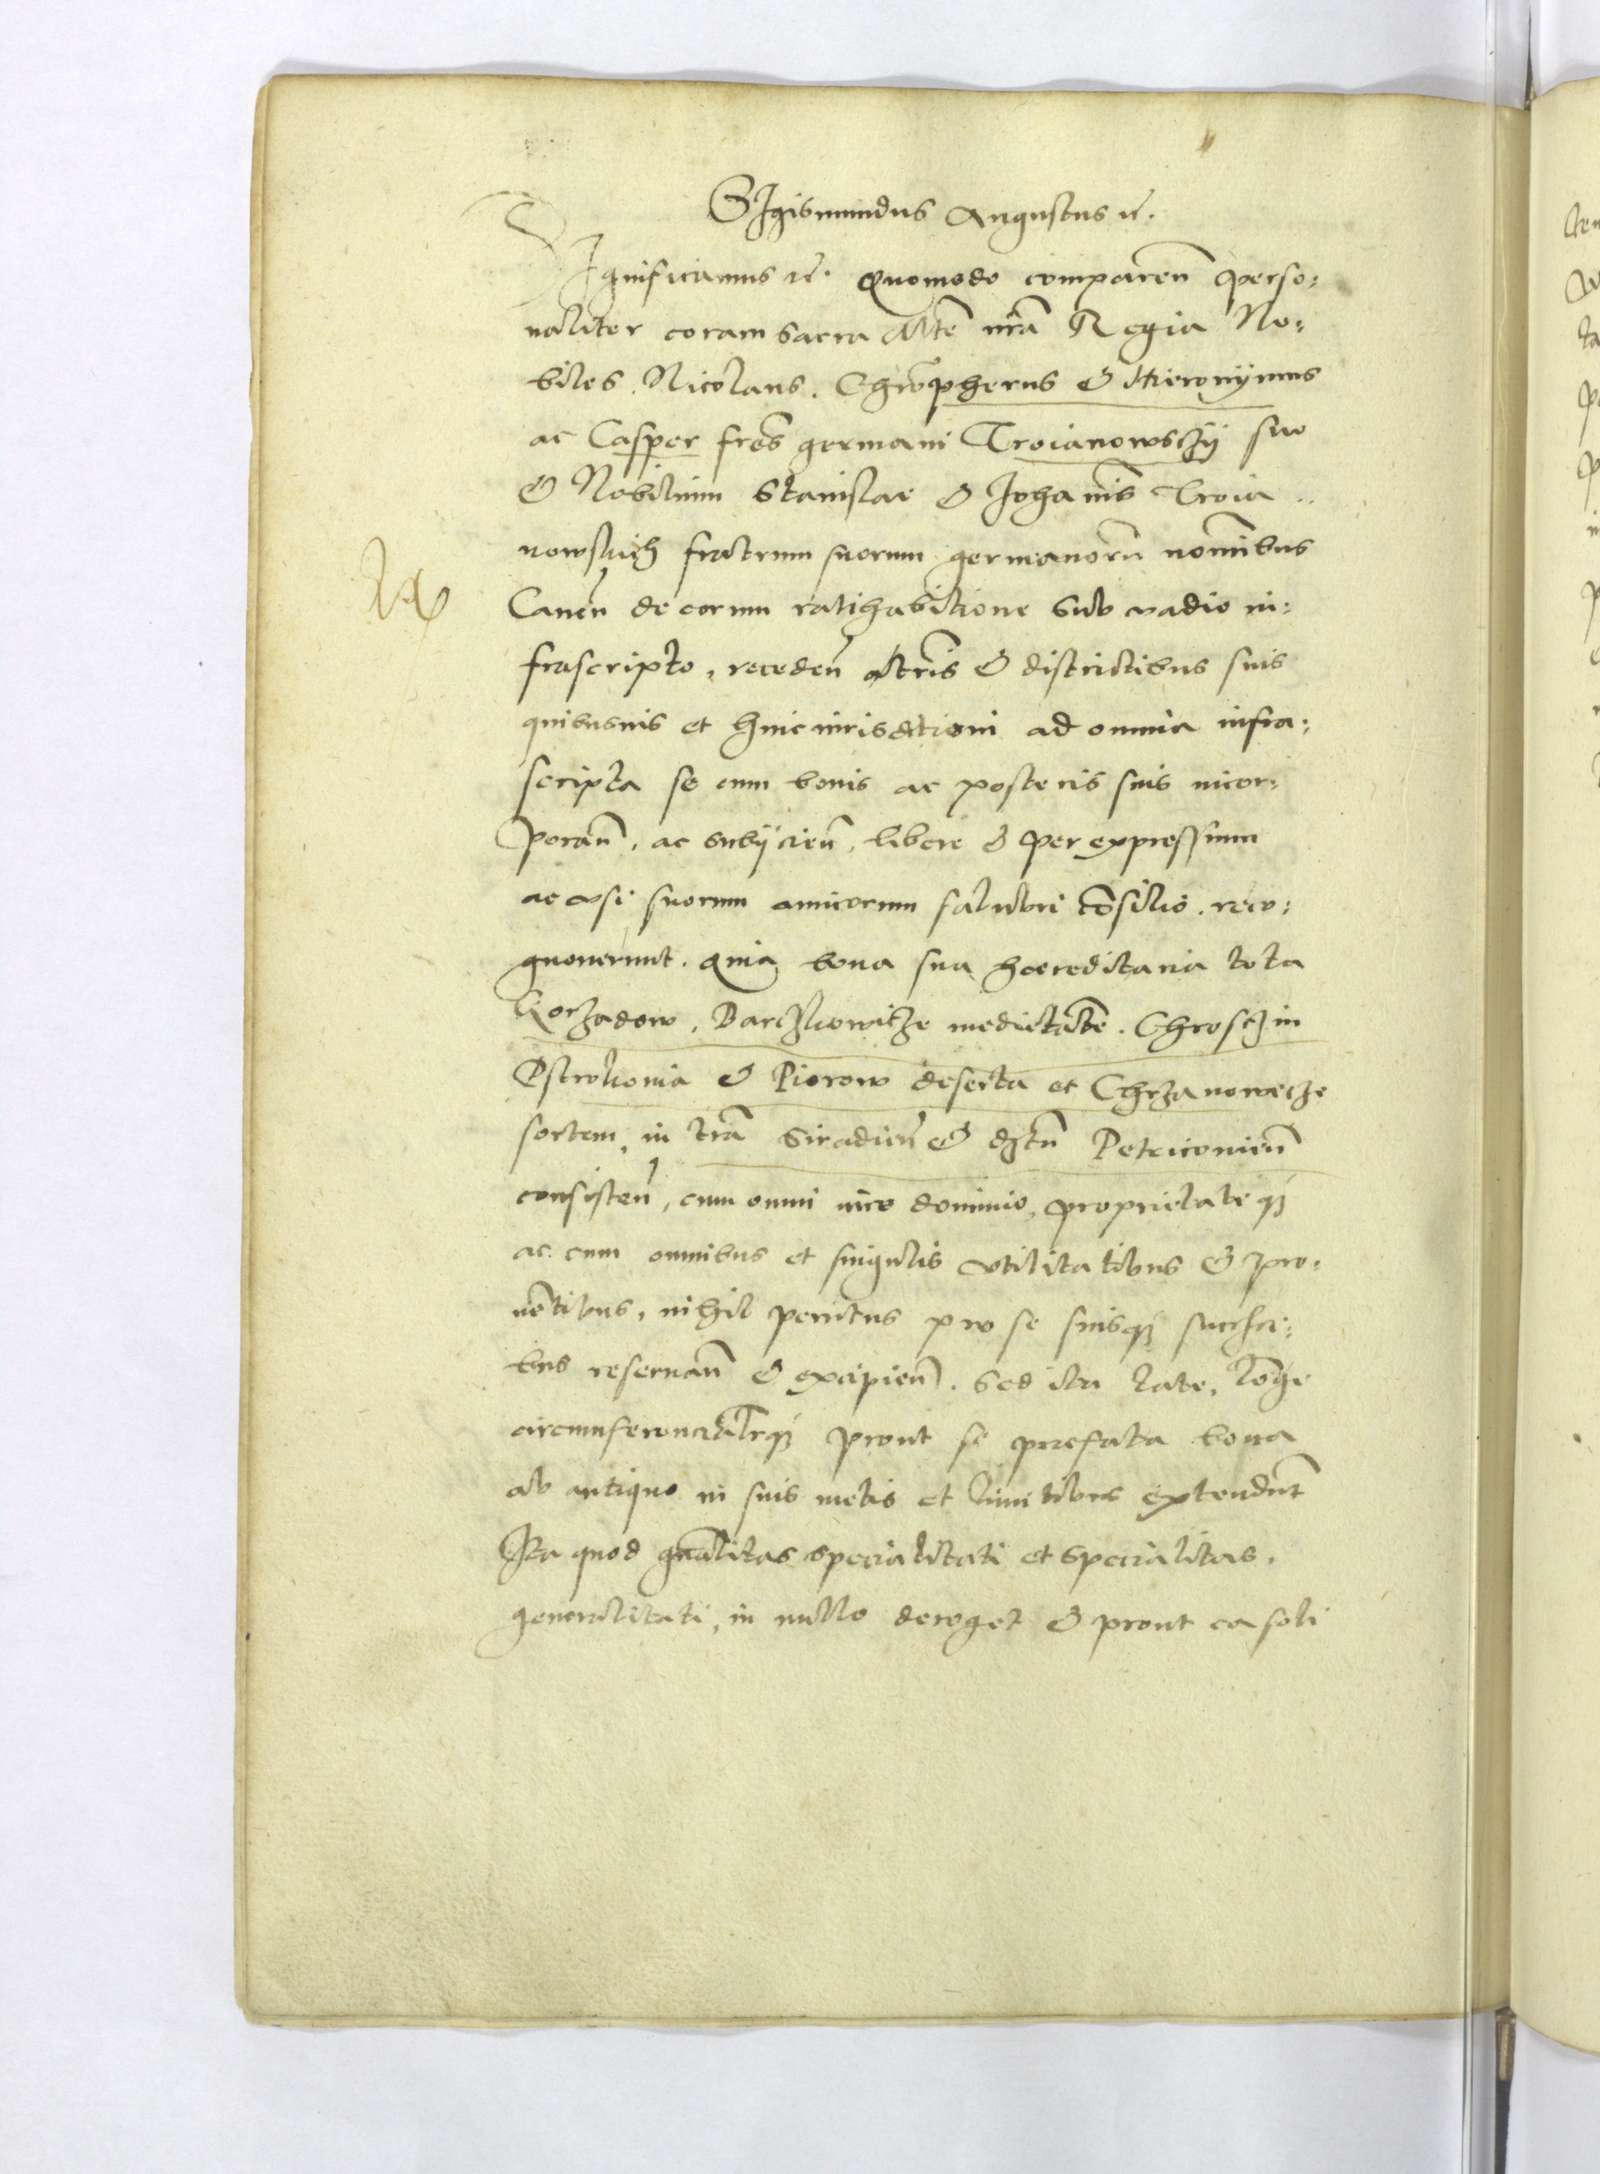 SIgismundus Augustus etc.
SIgnificamus etc. Quomodo comparen̄ perso:
naliter coram sacra Mte n̄ra Regia No:
biles. Nicolaus. Chrōpherus & Hieronÿmus
ac Casper fres germani Troianowsczÿ suo
& Nobilium Stanislai & Johānis Troia..
nowskich fratrum suorum germanorū nomībus
Caven̄ de eorum ratihabitione sub vadio in:
frascripto, receden̄ a terris & districtibus suis
quibusvis et huic iurisditioni ad omnia infra:
scripta se cum bonis ac posteris suis incor:
poran̄, ac subÿcien̄, libere & per expressum
ac usi suorum amicorum salubri cōsilio. reco:
gnoverunt. Quia bona sua haereditaria tota
Korzadow, Barczkowicze medietatē. Chrosczin
Ostrolionia & Piorow deserta et Chrzanowicze
sortem, in trā Siradien̄ & dstū Petriconien̄
consisten̄, cum omni iure dominio, proprietateq;
ac cum omnibus et singulis utilitatibus & pro:
uētibus, nihil penitus pro se suisq; succes:
bus reseruan̄ & excipien̄. Sed ita late, lōge
circumferencialrq; prout se praefata bona
ab antiquo in suis metis et limitibus extendūt
Ita quod gnālitas specialitati et specialitas.
generalitati, in nullo deroget & prout ea soli